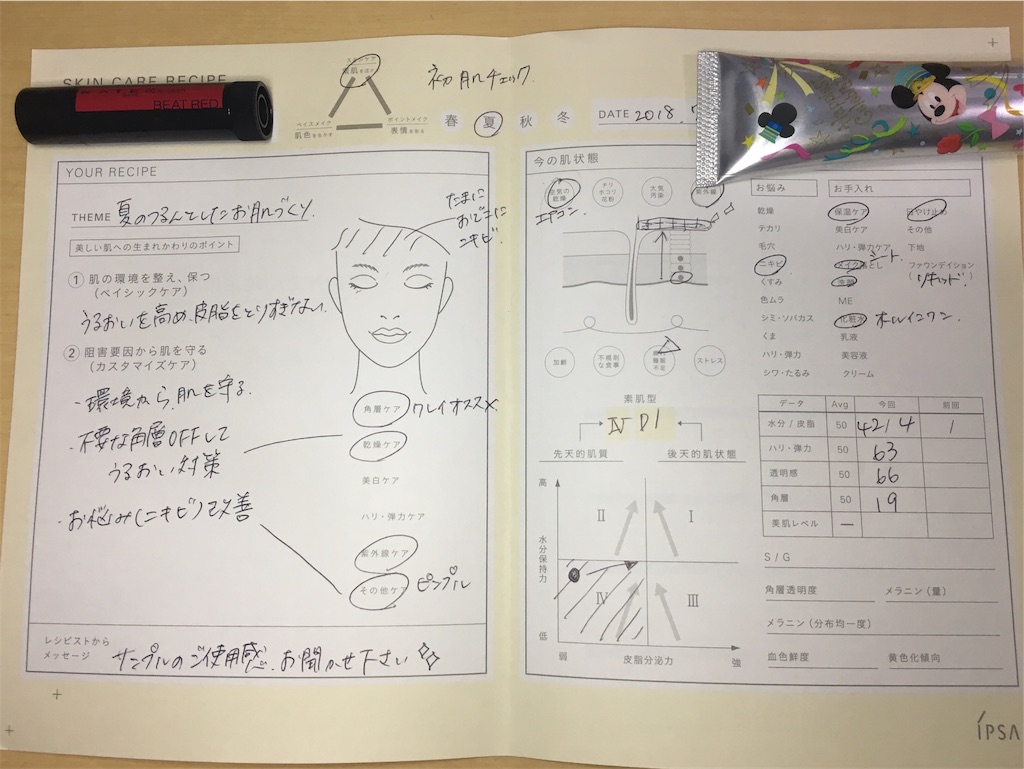 SKIN CARE RECIPE
BEAT RED
スキンケア
素肌を活かす
ベイスメイク
肌色を生かす
ポイントメイク
表情を彩る
初 肌チェック
春 夏 秋 冬
DATE 2018.
YOUR RECIPE
THEME 夏のつるんとしたお肌づくり.
たまに
おでこに
ニキビ
美しい肌への生まれかわりのポイント
① 肌の環境を整え、保つ
(ベイシックケア)
うるおいを高め、皮脂をとりすぎない.
② 阻害要因から肌を守る
(カスタマイズケア)
・環境から、肌を守る.
・不要な角層OFFして
うるおい対策
・お悩み(ニキビ)改善
角層ケア クレイオススメ
乾燥ケア
美白ケア
ハリ・弾力ケア
紫外線ケア
その他ケア ピンプル
レシピストから
メッセージ
サンプルのご使用感、お聞かせ下さい
今の肌状態
空気の
乾燥
エアコン
チリ
ホコリ
花粉
大気
汚染
紫外線
加齢
不規則
な食事
ストレス
素肌型
Ⅳ D1
先天的肌質
後天的肌状態
高
水分保持力
低
Ⅱ
Ⅰ
Ⅳ
Ⅲ
弱
皮脂分泌力
強
お悩み
お手入れ
乾燥 保湿ケア 日やけ止め
テカリ 美白ケア その他
毛穴 ハリ・弾力ケア 下地
シート.
ニキビ メイク落とし ファウンデイション
くすみ 洗顔 (リキッド)
色ムラ ME
シミ・ソバカス 化粧水 オールインワン.
くま 乳液
ハリ・弾力 美容液
シワ・たるみ クリーム
データ Avg 今回 前回
水分/皮脂 50 42 / 4 /
ハリ・弾力 50 63
透明感 50 66
角層 50 19
美肌レベル —
S / G
角層透明度 メラニン(量)
メラニン(分布均一度)
血色鮮度 黄色化傾向
IPSA